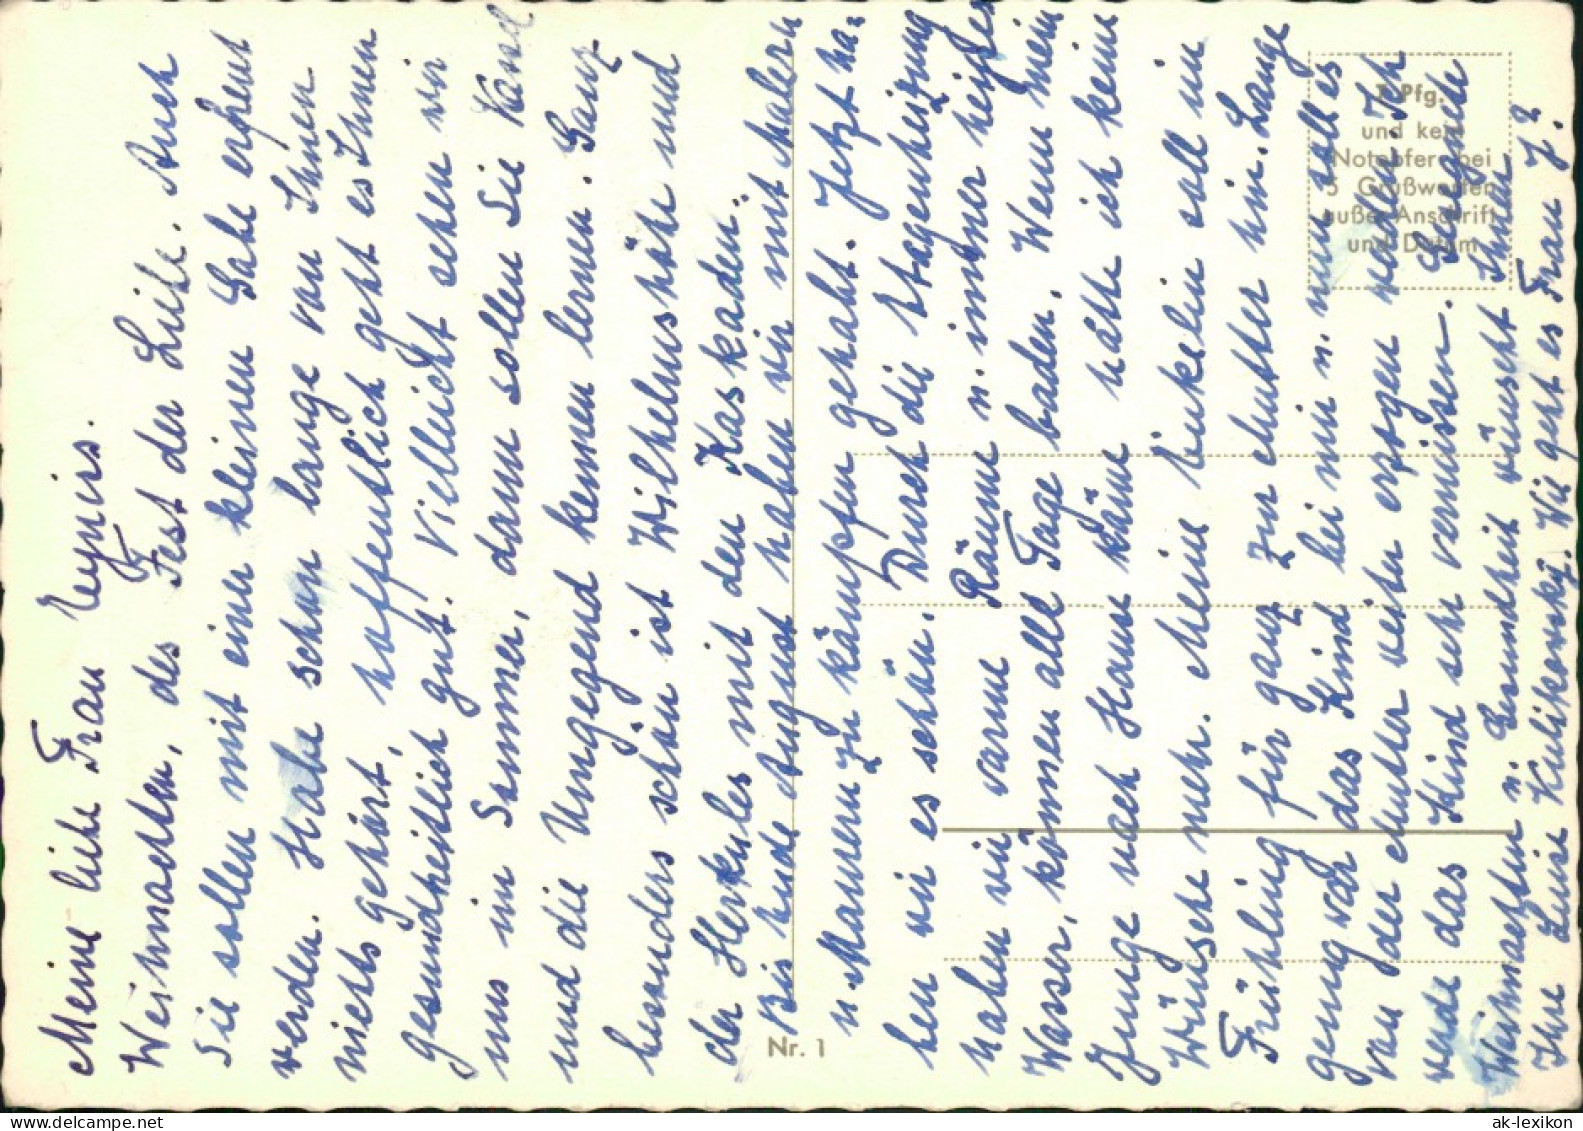 Meine liebe Frau Reyneis.
Weihnachten, das Fest der Liebe. Auch
Sie sollen mit einer kleinen Gabe erfreut
werden. Habe schon lange von Ihnen
nichts gehört, hoffentlich geht es Ihnen
gesundheitlich gut. Vielleicht sehen wir
uns im Sommer, dann sollen Sie Kassel
und die Umgegend kennen lernen. Ganz
besonders schön ist Wilhelmshöhe und
der Herkules mit den Kaskaden.
Bis Ende August haben wir mit Malern
u. Maurern zu kämpfen gehabt. Jetzt ha-
ben wir es schön. Durch die Etagenheizung
haben wir warme Räume u. immer heißes
Wasser, können alle Tage baden. Wenn mein
Junge nach Hause käme hätte ich keine
Wünsche mehr. Meine Enkelin soll im
Frühling für ganz zur Mutter hin. Lange
genug war das Kind bei mir u. nun soll es
von der Mutter weiter erzogen werden. Ich
werde das Kind sehr vermissen. Gesegnete
Weihnachten u. Gesundheit wünscht Ihnen
Ihre Luise Kulikowsky. Wie geht es Frau J?
Nr. 1
7 Pfg.
und kein
Notopfer bei
5 Grußworten
außer Anschrift
und Datum
ak-lexikon